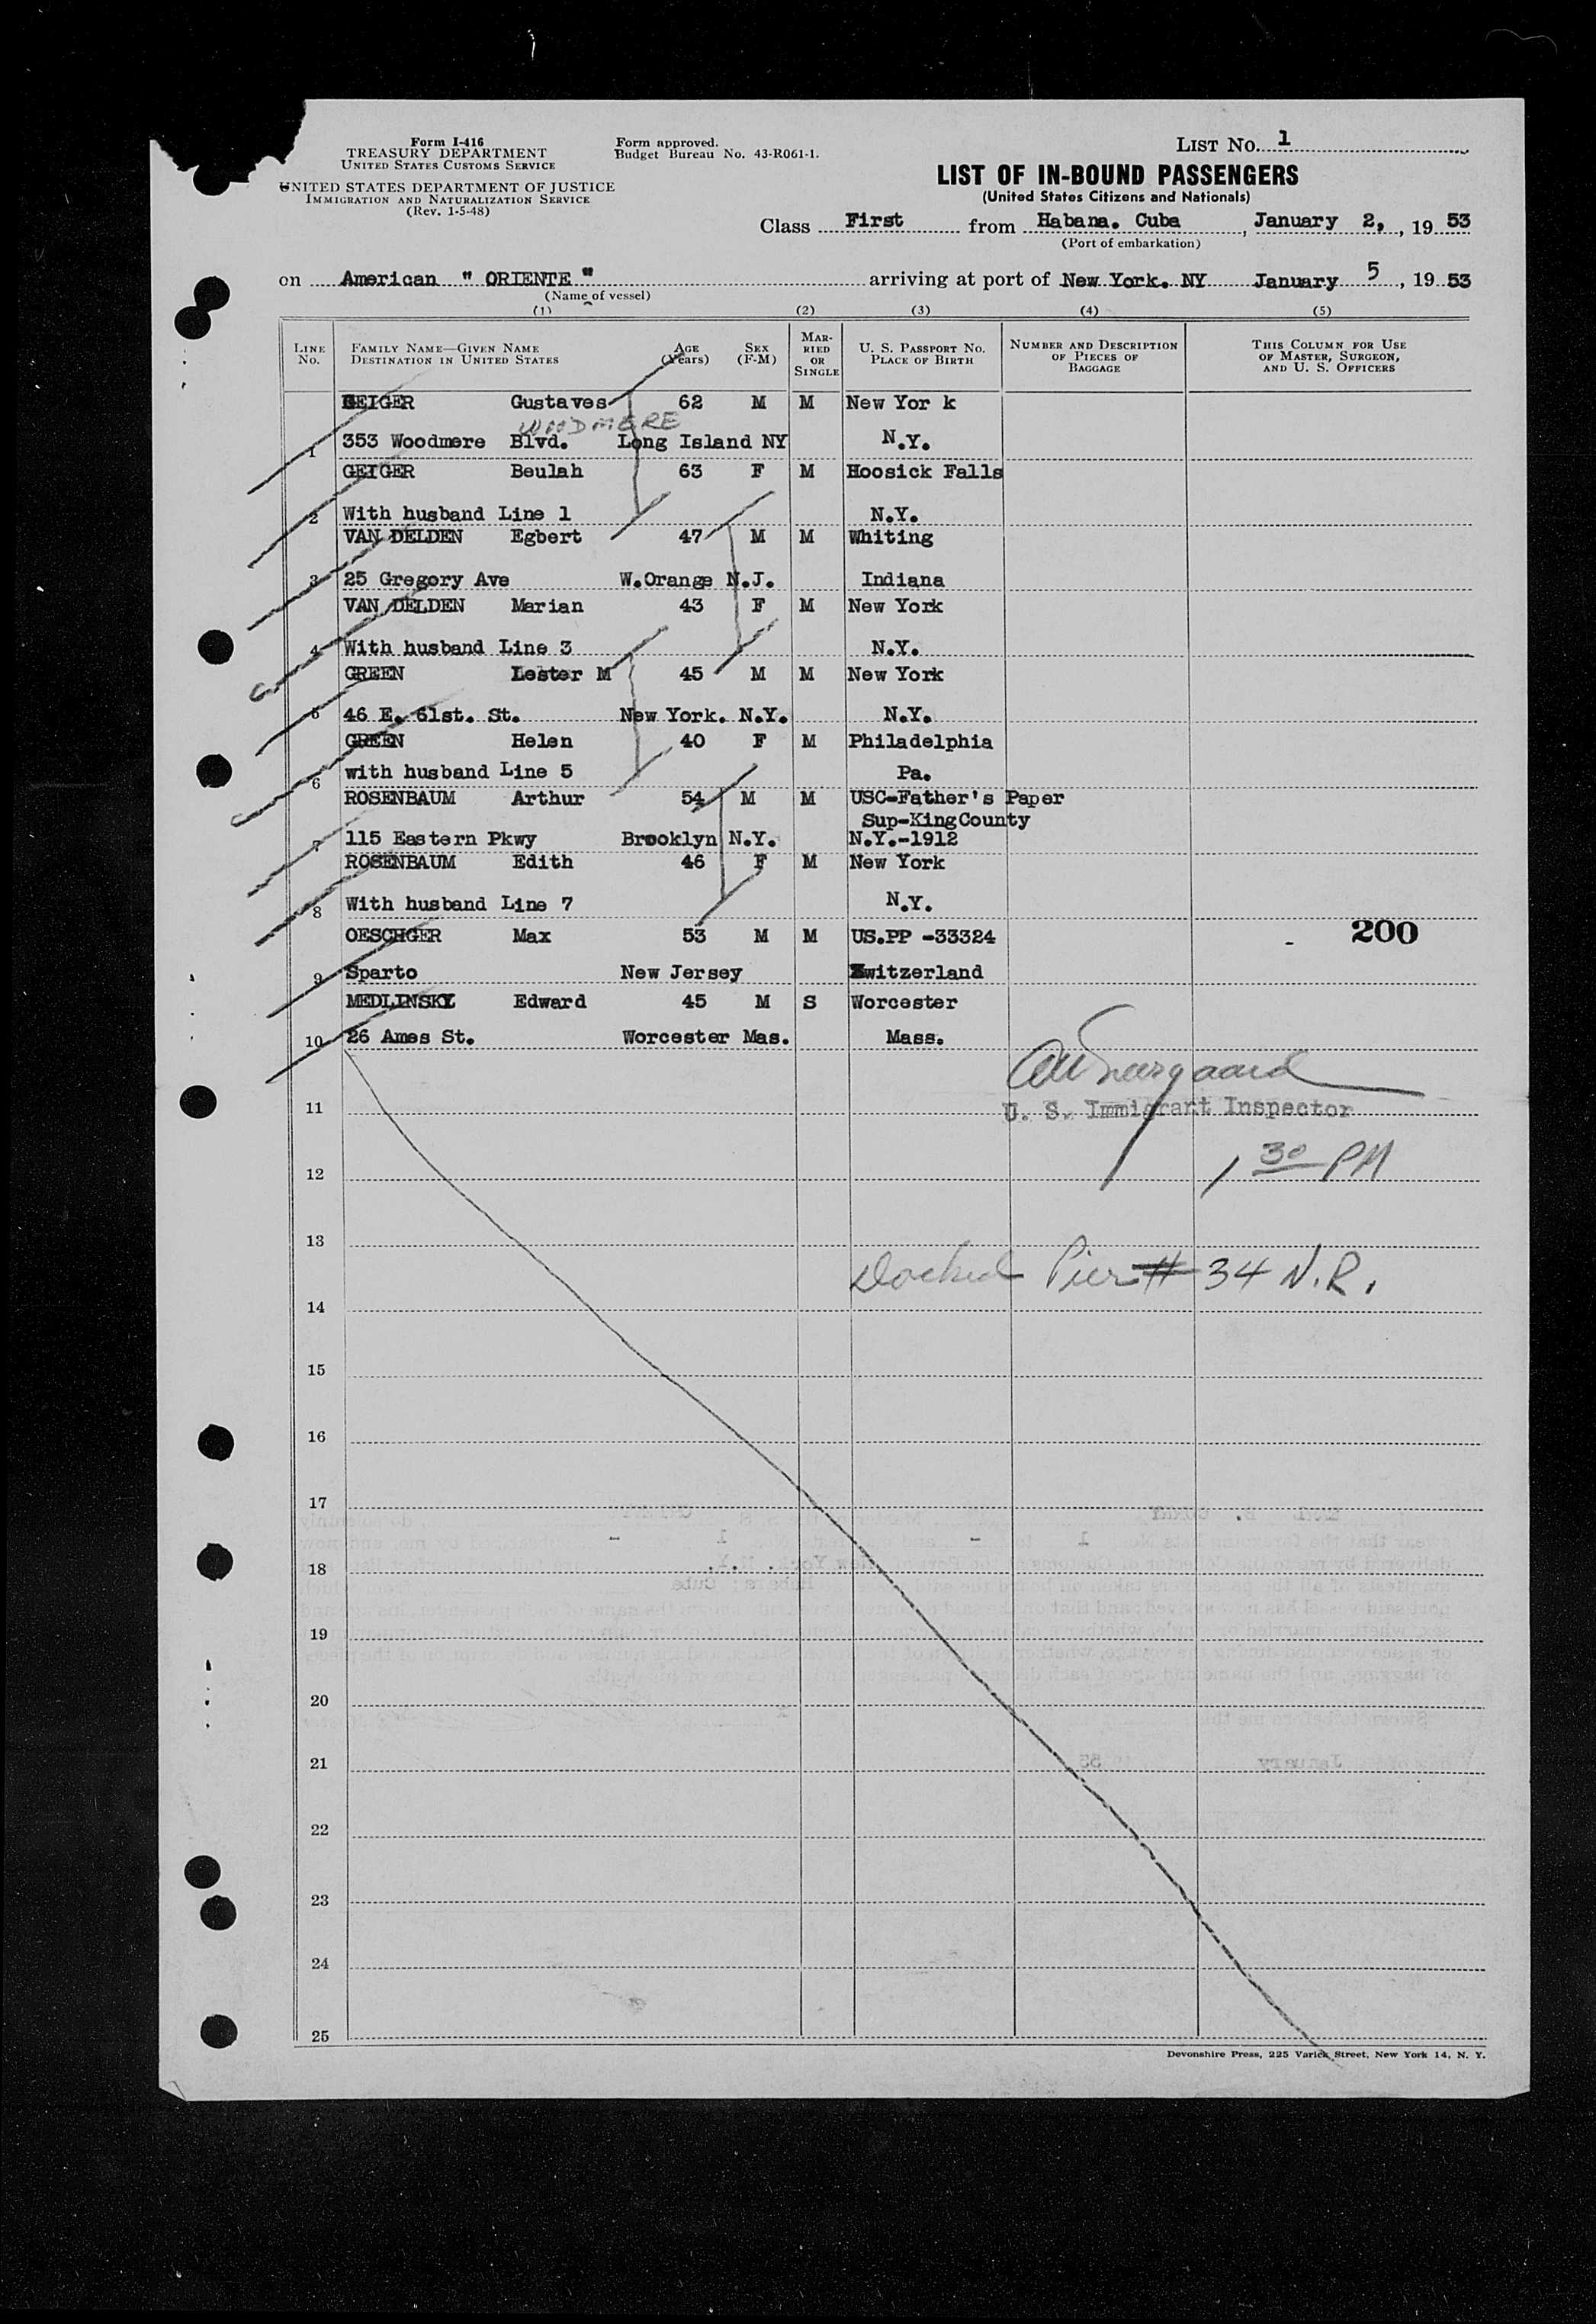 Form I-416
TREASURY DEPARTMENT
UNITED STATES CUSTOMS SERVICE
UNITED STATES DEPARTMENT OF JUSTICE
IMMIGRATION AND NATURALIZATION SERVICE
(Rev. 1-5-48)
Form approved.
Budget Bureau No. 43-R061-1.
LIST No. 1
LIST OF IN-BOUND PASSENGERS
(United States Citizens and Nationals)
Class First from Habana. Cuba, January 2,, 19 53
(Port of embarkation)
on American " ORIENTE " arriving at port of New York. NY January 5, 19 53
(Name of vessel)
(1) (2) (3) (4) (5)
LINE No. FAMILY NAME—GIVEN NAME DESTINATION IN UNITED STATES AGE (Years) SEX (F-M) MARRIED OR SINGLE U. S. PASSPORT NO. PLACE OF BIRTH NUMBER AND DESCRIPTION OF PIECES OF BAGGAGE THIS COLUMN FOR USE OF MASTER, SURGEON, AND U. S. OFFICERS
GEIGER Gustaves 62 M M New Yor k
WOODMERE
1 353 Woodmere Blvd. Long Island NY N.Y.
GEIGER Beulah 63 F M Hoosick Falls
2 With husband Line 1 N.Y.
VAN DELDEN Egbert 47 M M Whiting
3 25 Gregory Ave W.Orange N.J. Indiana
VAN DELDEN Marian 43 F M New York
4 With husband Line 3 N.Y.
GREEN Lester M 45 M M New York
5 46 E. 61st. St. New York. N.Y. N.Y.
GREEN Helen 40 F M Philadelphia
6 with husband Line 5 Pa.
ROSENBAUM Arthur 54 M M USC-Father's Paper
Sup-KingCounty
7 115 Eastern Pkwy Brooklyn N.Y. N.Y.-1912
ROSENBAUM Edith 46 F M New York
8 With husband Line 7 N.Y.
OESCHGER Max 53 M M US.PP -33324 - 200
9 Sparto New Jersey Switzerland
MEDLINSKY Edward 45 M S Worcester
10 26 Ames St. Worcester Mas. Mass.
11 U. S. Immigrant Inspector
12 1 30 PM
13
Docked Pier # 34 N.R.
14
15
16
17
18
19
20
21
22
23
24
25
Devonshire Press, 225 Varick Street, New York 14, N. Y.